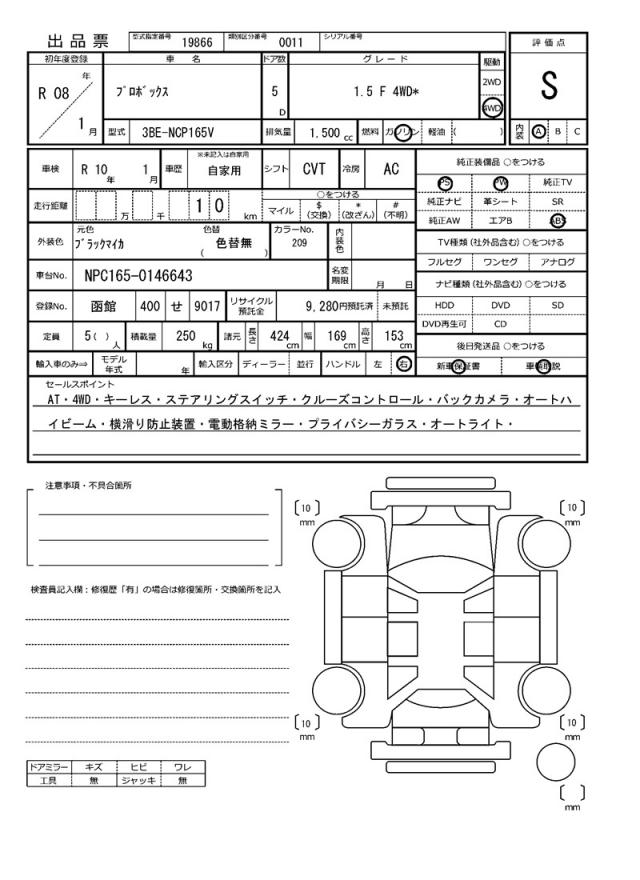 出品票
型式指定番号 19866 類別区分番号 0011 シリアル番号
評価点
S
初年度登録 車名 ドア数 グレード 駆動
R 08 年 1 月
プロボックス 5 D 1.5 F 4WD* 2WD 4WD
型式 3BE-NCP165V 排気量 1.500 cc 燃料 ガソリン 軽油 ( )
内装 A B C
車検 R 10 年 1 月 車歴 ※未記入は自家用 自家用 シフト CVT 冷房 AC
走行距離 万 千 1 0 km
○をつける
マイル $ (交換) * (改ざん) # (不明)
外装色 元色 ブラックマイカ 色替 ( 色替無 ) カラーNo. 209 内装色
車台No. NPC165-0146643 名変期限 月 日
登録No. 函館 400 せ 9017 リサイクル預託金 9,280円預託済 未預託
定員 5( ) 人 積載量 250 kg 諸元 長さ 424 cm 幅 169 cm 高さ 153 cm
輸入車のみ⇒ モデル年式 年 輸入区分 ディーラー 並行 ハンドル 左 右
純正装備品 ○をつける
PS PW 純正TV
純正ナビ 革シート SR
純正AW エアB ABS
TV種類 (社外品含む) ○をつける
フルセグ ワンセグ アナログ
ナビ種類 (社外品含む) ○をつける
HDD DVD SD
DVD再生可 CD
後日発送品 ○をつける
新車保証書 車輌取説
セールスポイント
AT・4WD・キーレス・ステアリングスイッチ・クルーズコントロール・バックカメラ・オートハ
イビーム・横滑り防止装置・電動格納ミラー・プライバシーガラス・オートライト・
注意事項・不具合箇所
検査員記入欄：修復歴「有」の場合は修復箇所・交換箇所を記入
ドアミラー キズ ヒビ ワレ
工具 無 ジャッキ 無
〔10〕 mm
〔10〕 mm
〔10〕 mm
〔10〕 mm
〔 〕 mm